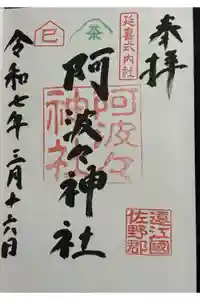 奉拝
延喜式内社
茶
巳
阿波々神社
阿波々神社
遠江國
佐野郡
令和七年三月十六日